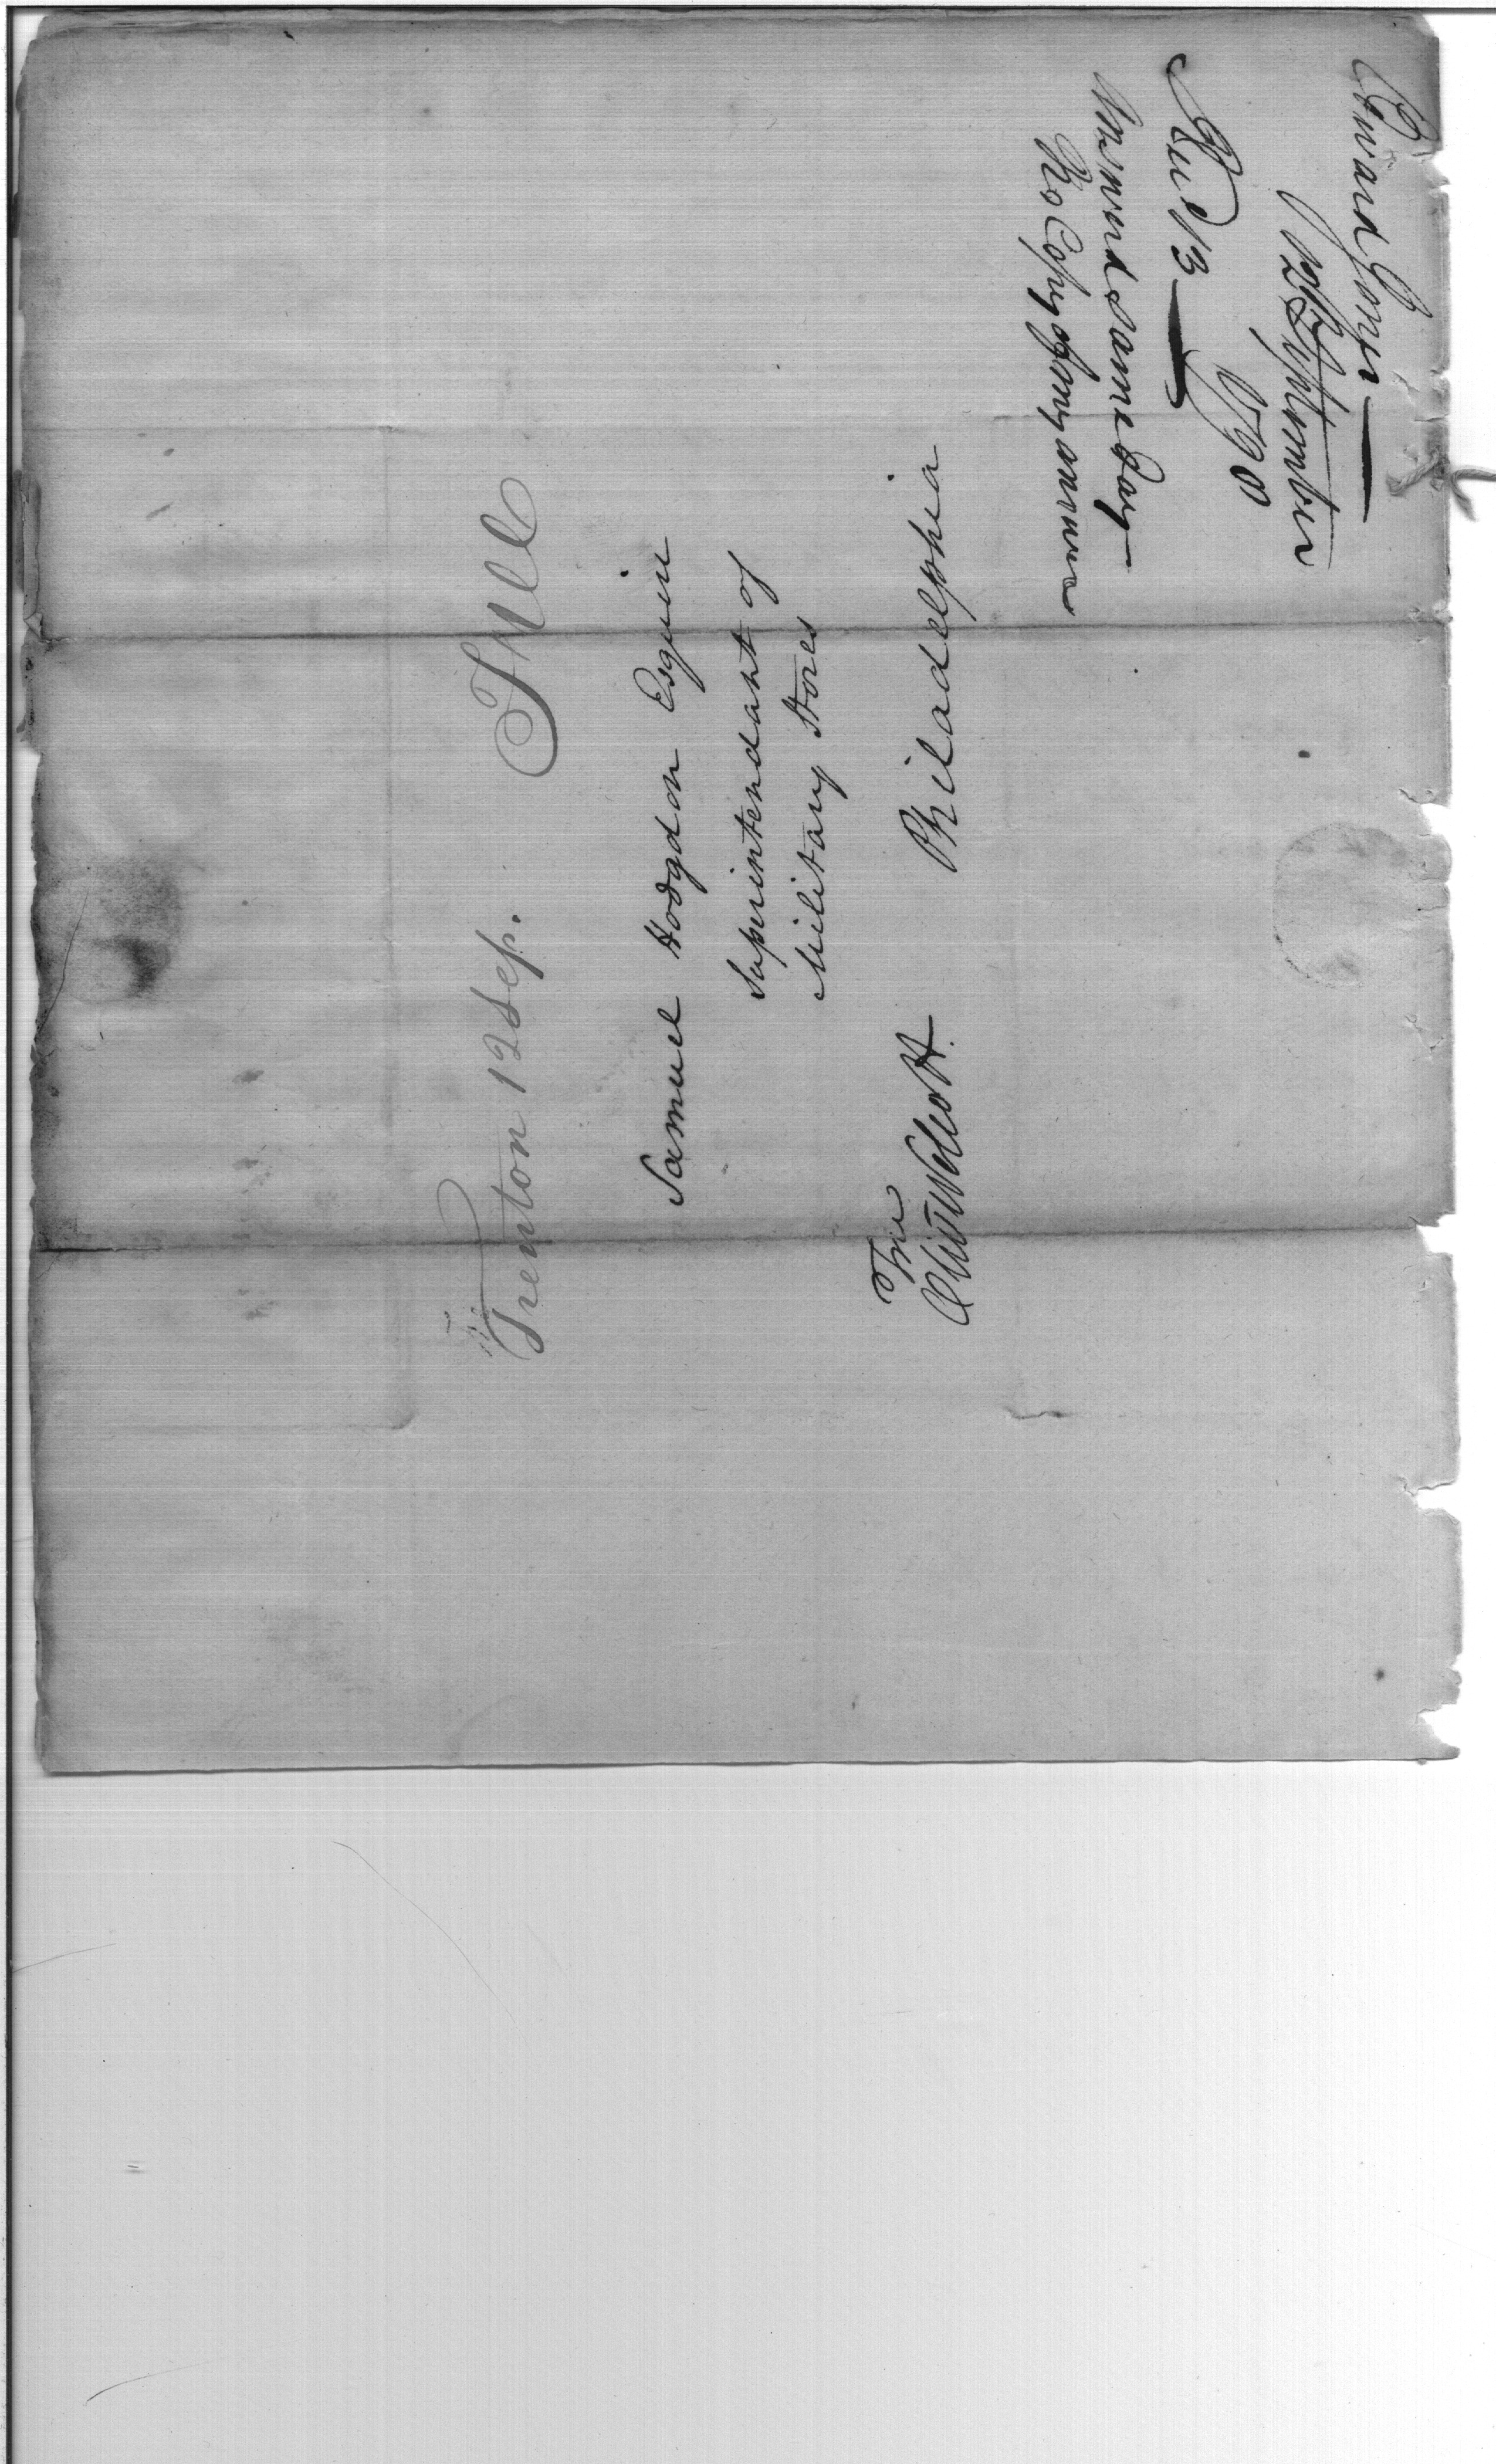 Trenton 12 Sep. Free
Samuel Hodgdon Esquire
Superintendant of
Military Stores
Philadelphia
Free
Oliv Wolcott.
Edward Jones
12 September
1798
Recd 13
Answered same day
No Copy of any answer